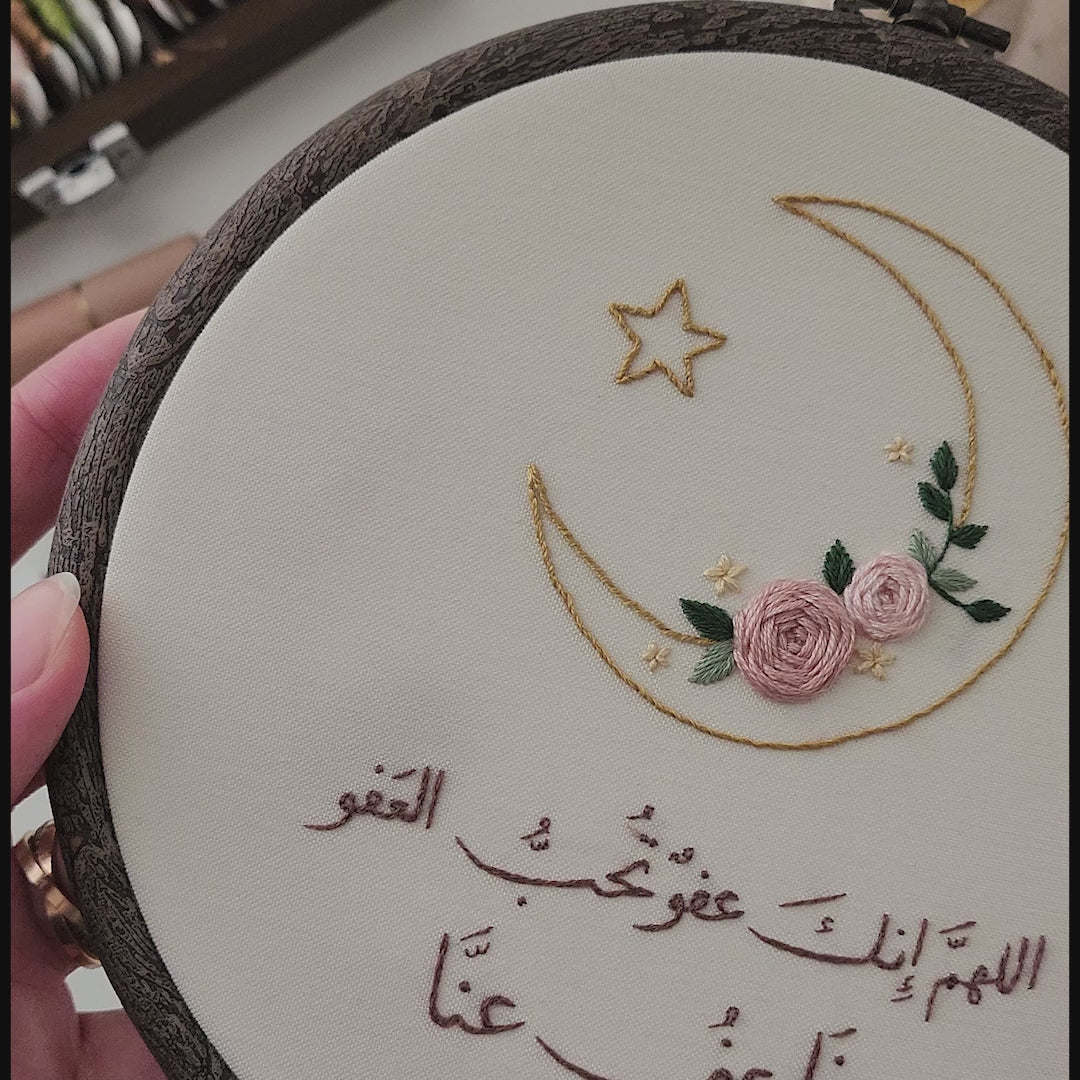 اللهمَّ إِنكَ عفوٌ تُحبُّ العَفو
فَاعفُ عنَّا